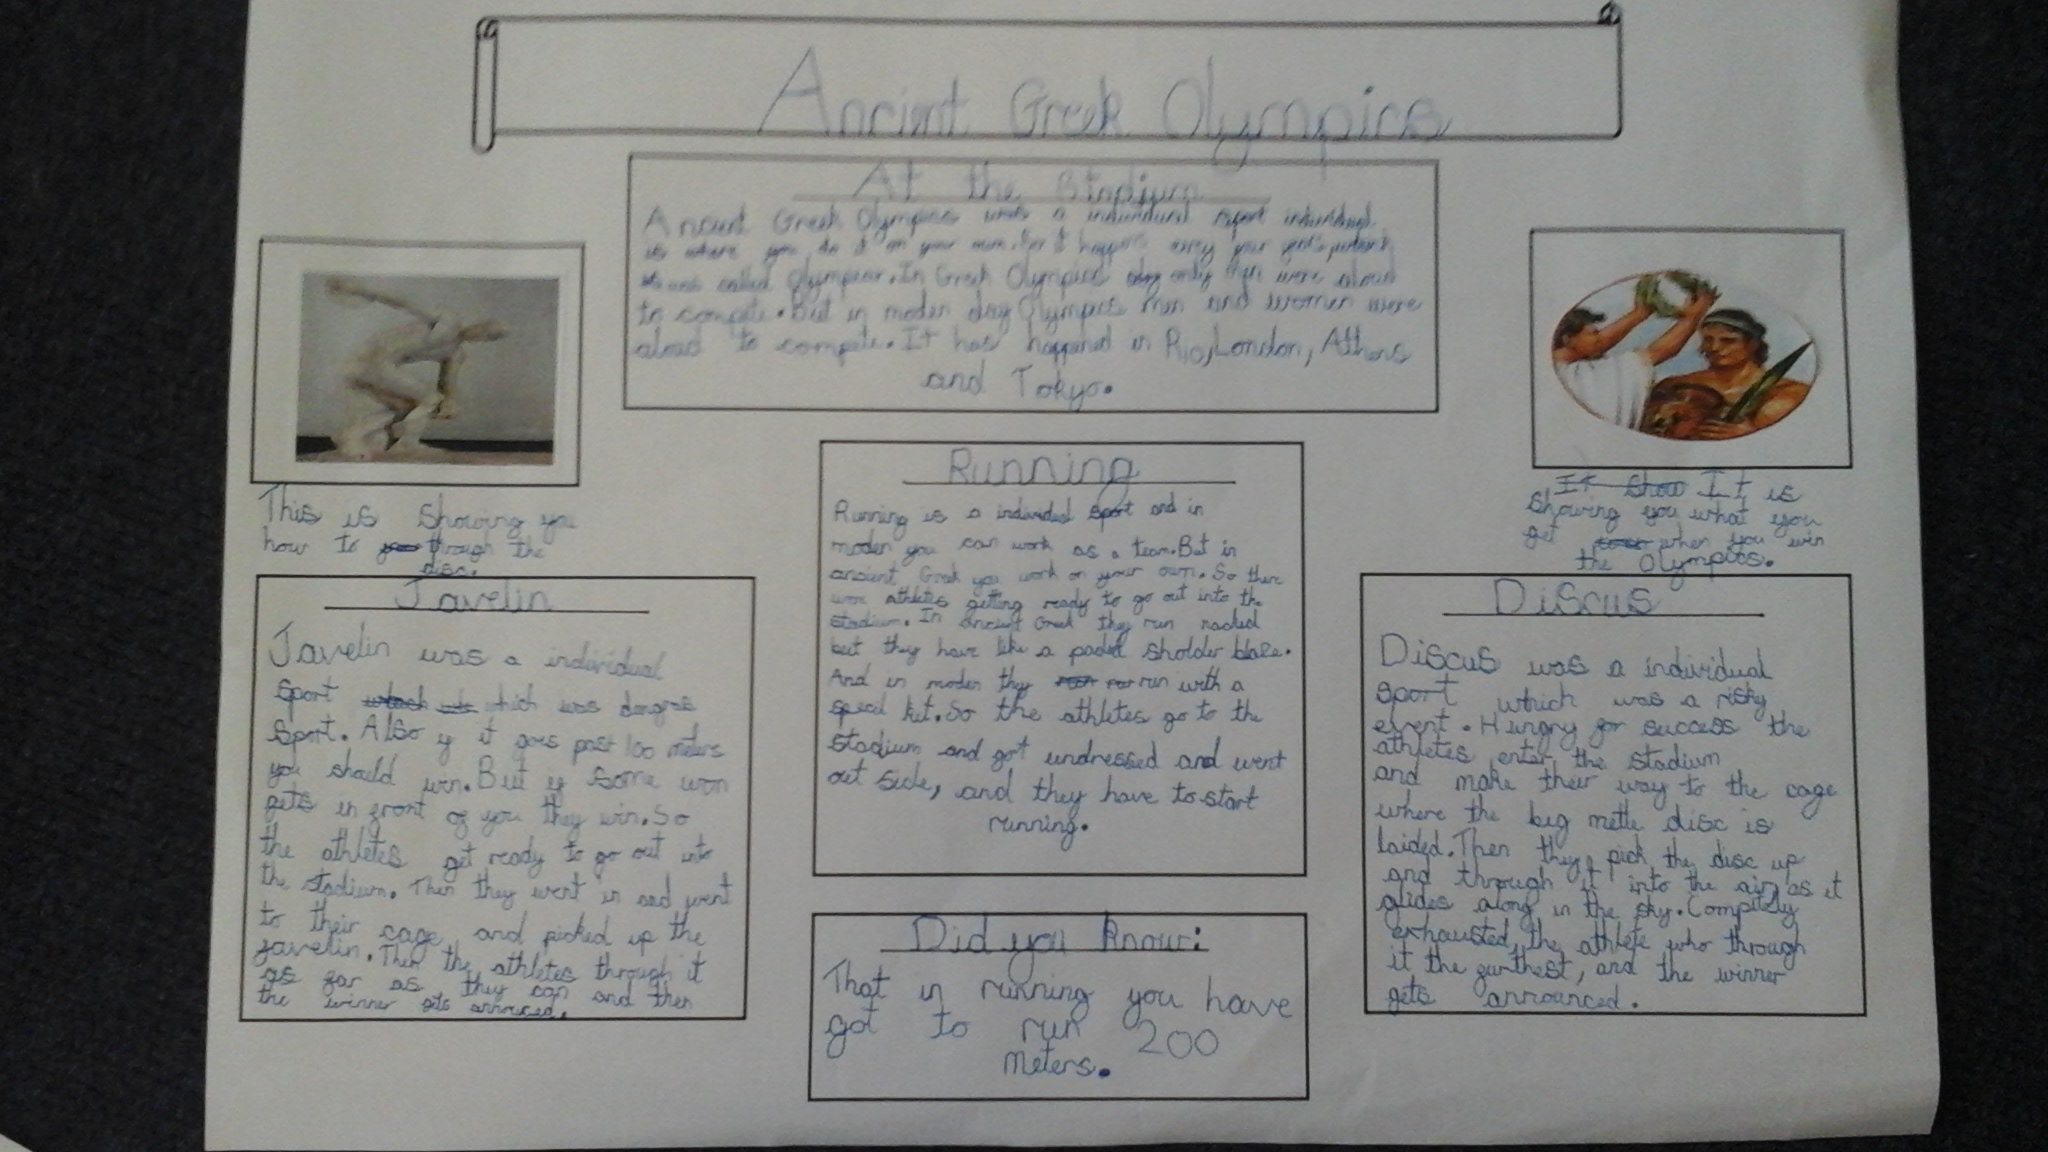 Ancient Greek Olympics
At the Stadium
Ancient Greek Olympics was a individual sport individual
is where you do it on your own. it happens every four years
was called Olympics. In Greek Olympics only men were aloud
to compete. But in moden day Olympics men and women were
aloud to compete. It has happened in Rio, London, Athens
and Tokyo.
This is showing you
how to through the
disc.
It show It is
showing you what you
get when you win
the Olympics.
Javelin
Javelin was a individual
sport which was dangros
sport. Also if it goes past 100 meters
you should win. But if some won
gets in front of you they win. So
the athletes get ready to go out into
the stadium. Then they went in and went
to their cage and picked up the
javelin. Then the athletes through it
as far as they can and then
the winner gets
Running
Running is a individed sport and in
moden you can work as a team. But in
ancient Greek you work on your own. So there
were athletes getting ready to go out into the
stadium. In ancient Greek they run nacked
but they have like a paded sholder blaze.
And in moden they run with a
specel kit. So the athletes go to the
stadium and got undressed and went
out side, and they have to start
running.
Did you know:
That in running you have
got to run 200
meters.
Discus
Discus was a individual
sport which was a risky
event. Hungry for success the
athletes enter the stadium
and make their way to the cage
where the big metle disc is
laided. Then they pick the disc up
and through it into the air, as it
glides along in the sky. Compitely
exhausted, the athlete who through
it the furthest, and the winner
gets announced.